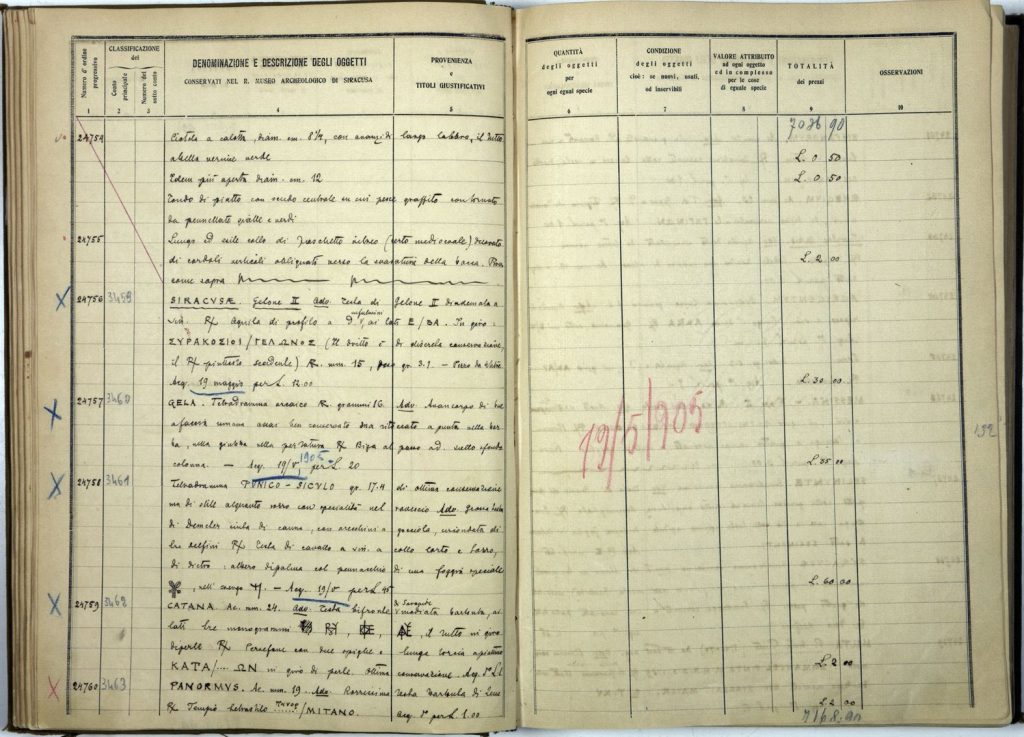 Numero d'ordine progressivo
CLASSIFICAZIONE
dei
Conto principale
Numero del sotto conto
DENOMINAZIONE E DESCRIZIONE DEGLI OGGETTI
CONSERVATI NEL R. MUSEO ARCHEOLOGICO DI SIRACUSA
PROVENIENZA
e
TITOLI GIUSTIFICATIVI
1 2 3 4 5
24754 Ciotola a calotta, diam. cm. 8½, con avanzi di largo labbro, il tutto
a bella vernice verde
Idem più aperta diam. cm. 12
Tondo di piatto con tondo centrale in cui pesce graffito contornato
da pennellate gialle e verdi
24755 Lungo ed esile collo di fiaschetto (certo medioevale) decorato
di cordoli verticali obliquati verso la svasatura della bocca.
come sopra
24756 3459 SIRACVSÆ. Gelone II Adv. Testa di Gelone II diademata a
sin. R/ Aquila di profilo a d., ai lati E / BA. In giro:
ΣΥΡΑΚΟΣΙΟΙ / ΓΕΛΩΝΟΣ (Il dritto è di discreta conservazione,
il R/ piuttosto scadente) AR. mm. 15, peso gr. 3.1 –
Acq. 19 maggio per L. 12.00
24757 3460 GELA. Tetradramma arcaico AR. grammi 16. Adv. Avancorpo di bue
a faccia umana assai ben conservato ma ritoccato a punta nella bar-
ba, nella giubba nella R/ Biga al passo ad. sullo sfondo
colonna. – Acq. 19/V 1905 per L. 20
24758 3461 Tetradramma PUNICO – SICULO gr. 17.4 di ottima conservazione
ma di stile alquanto rozzo con specialità nel rovescio Adv. Grossa testa
di Demeter cinta di canna, con orecchini a gocciola, circondata di
tre delfini R/ Testa di cavallo a sin. a collo corto e grosso,
di dietro: albero di palma col pennacchio di una foggia speciale
, nell'esergo. – Acq. 19/V per L. 45
24759 3462 CATANA. Ae. mm. 24. Adv. Testa bifronte di Serapide modiata barbuta, ai
lati tre monogrammi , il tutto in giro
di perle R/ Persefone con due spighe e lunga torcia
KATA/.... ΩΝ in giro di perle. Ottima conservazione. Acq.
24760 3463 PANORMVS. Ae. mm. 19. Adv. Rozzissima testa barbuta di Zeus
R/ Tempio tetrastilo / MITANO. Acq. per L. 1.00
QUANTITÀ
degli oggetti
per
ogni egual specie
CONDIZIONE
degli oggetti
cioè: se nuovi, usati,
od inservibili
VALORE ATTRIBUITO
ad ogni oggetto
ed in complesso
per le cose
di eguale specie
TOTALITÀ
dei prezzi
OSSERVAZIONI
6 7 8 9 10
7036 90
L. 0 50
L. 0 50
L. 2 00
L. 30 00
19/5/905
132
L. 35 00
L. 60 00
L. 2 00
L. 2 00
7168.90